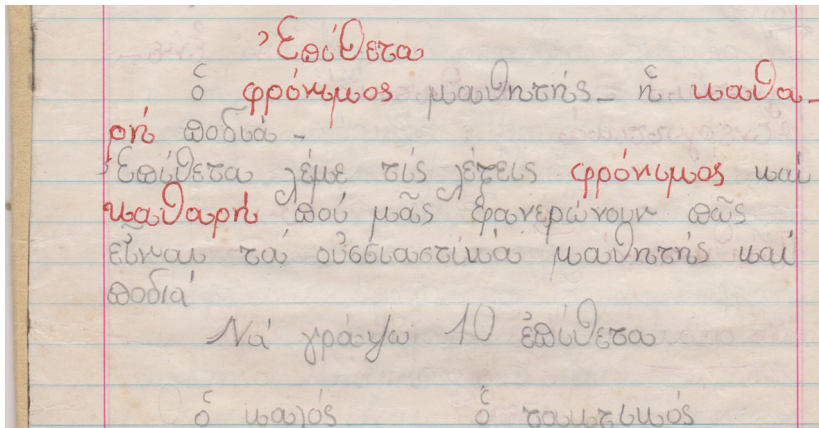 Ἐπίθετα
ὁ φρόνιμος μαθητής - ἡ καθα-
ρή ποδιά -
Ἐπίθετα λέμε τίς λέξεις φρόνιμος καί
καθαρή πού μᾶς φανερώνουν πῶς
εἶναι τά οὐσιαστικά μαθητής καί
ποδιά
Νά γράψω 10 ἐπίθετα
ὁ καλός ὁ τακτικός